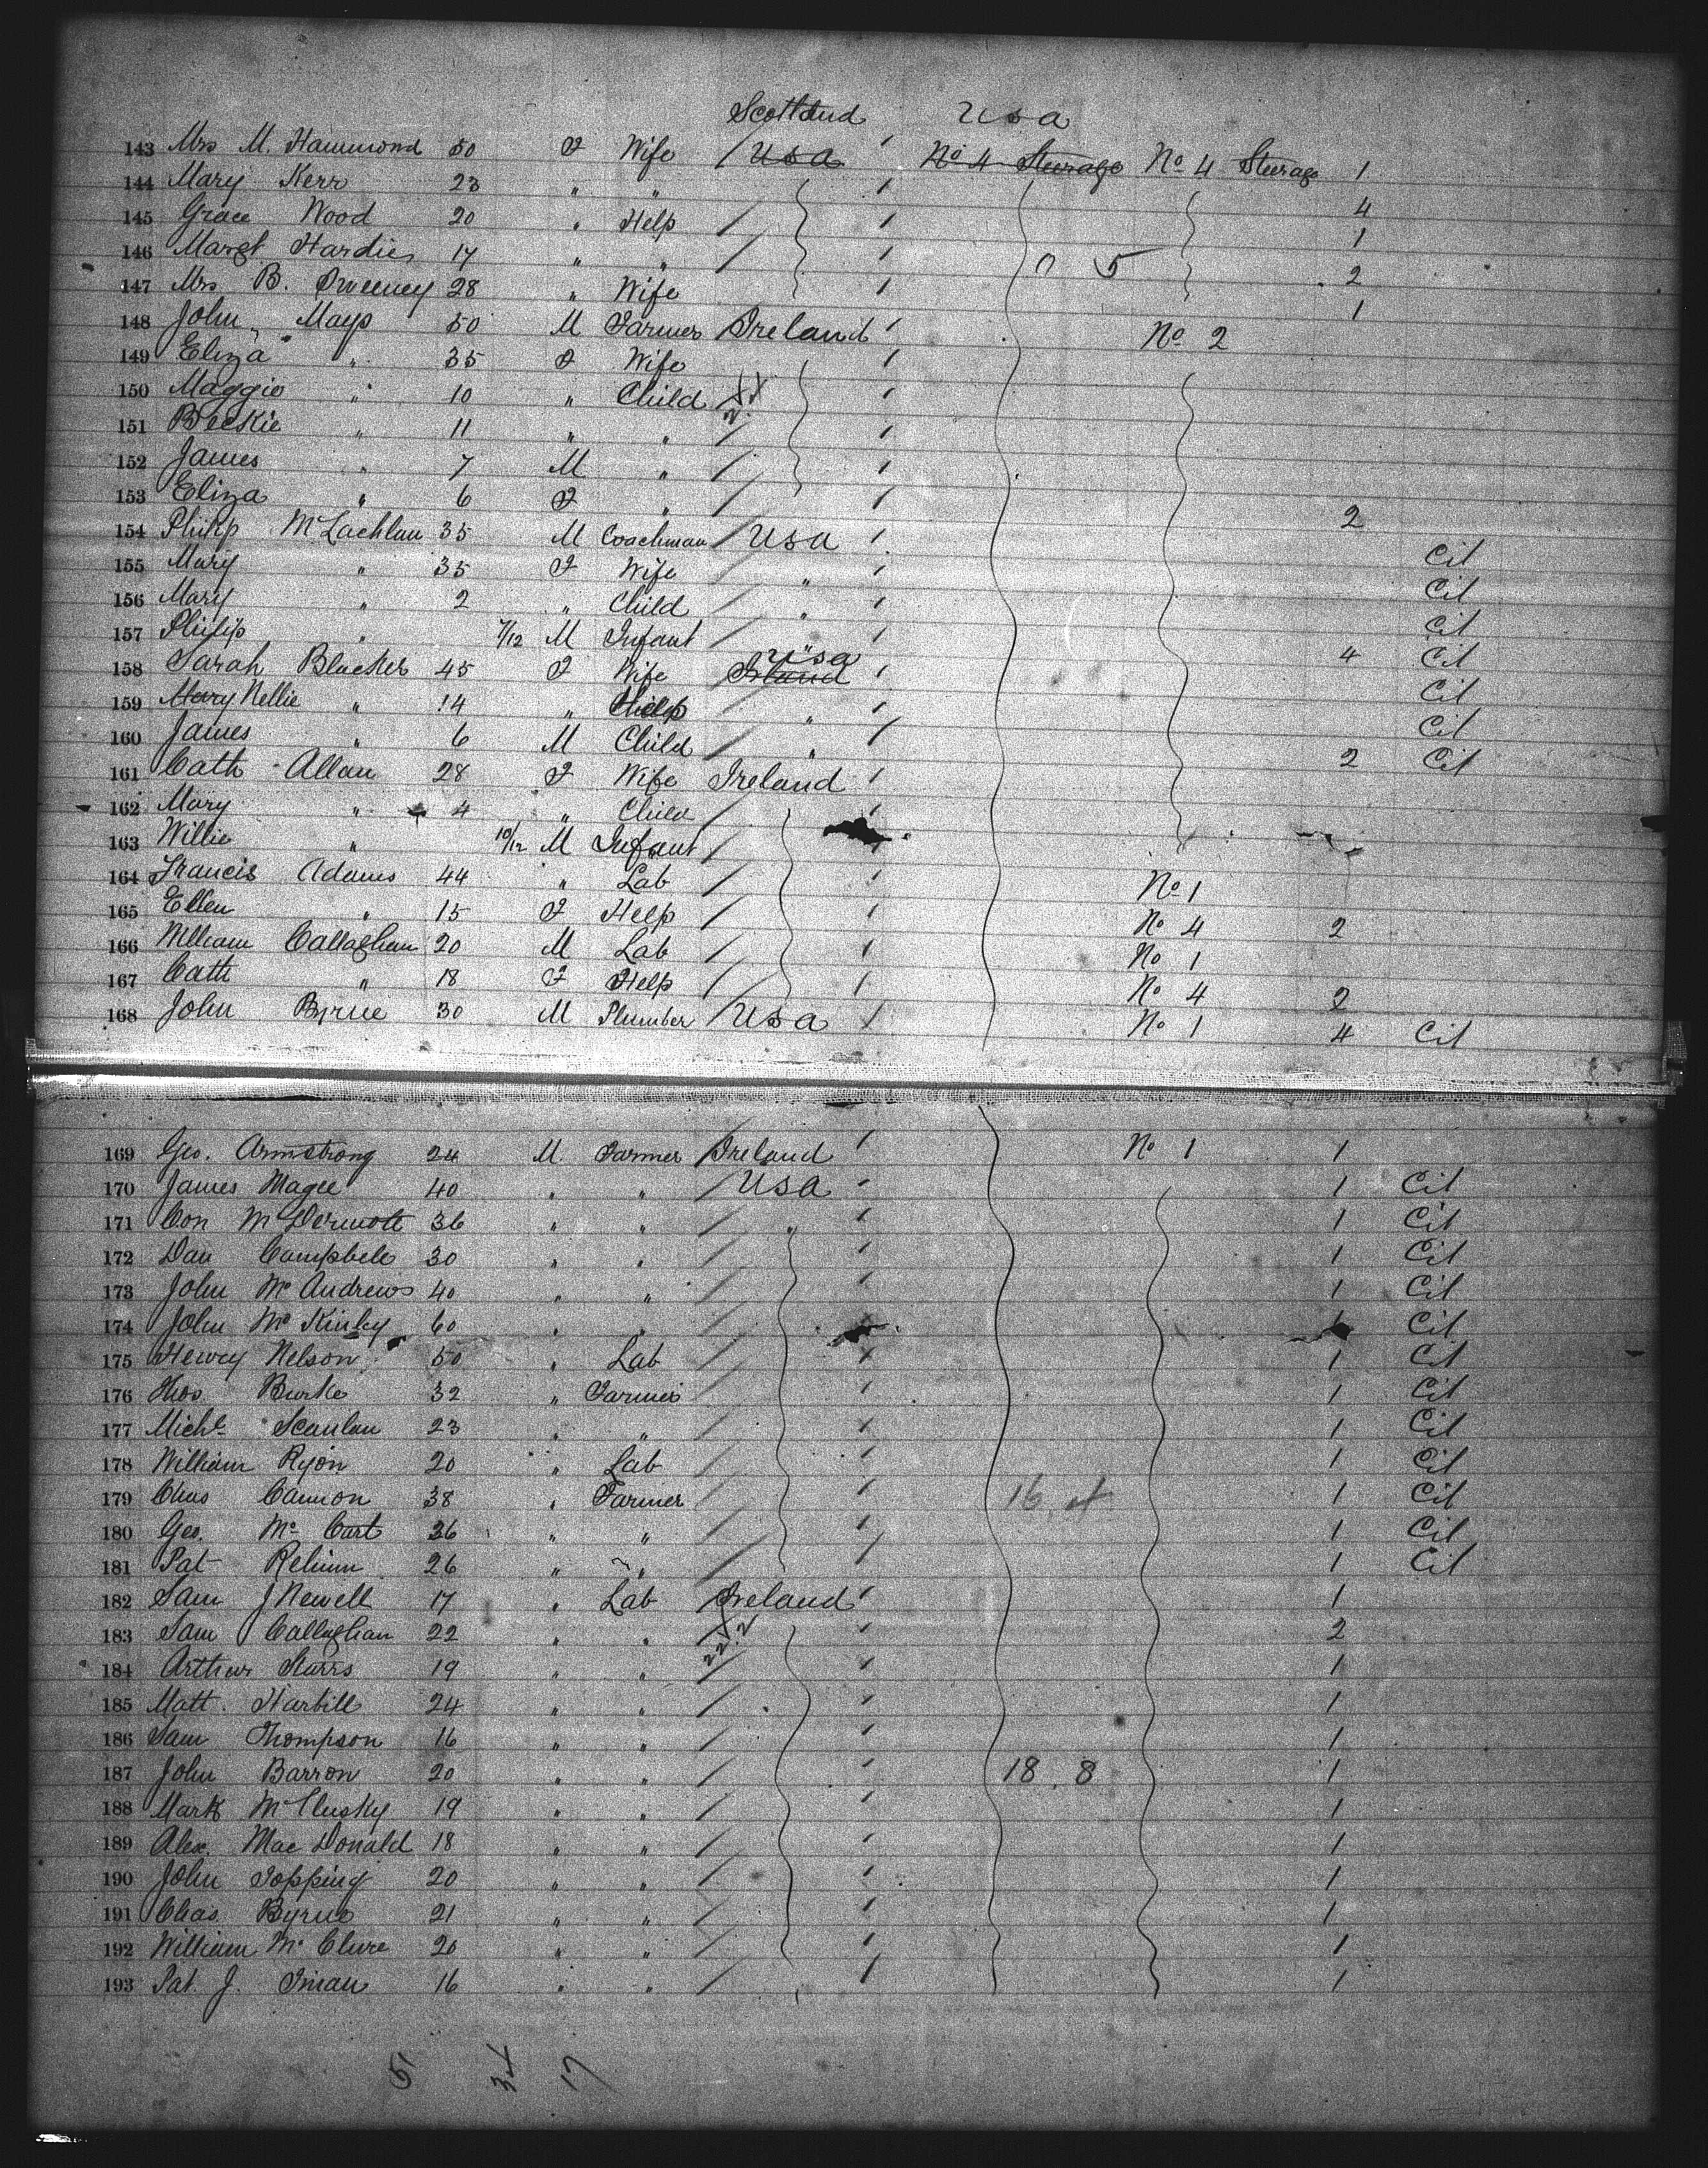 Scotland USA
143 Mrs M. Hammond 50 F Wife / USA / No 4 Steerage No 4 Steerage 1
144 Mary Kerr 23 " " / 4
145 Grace Wood 20 " Help / / 1
146 Margt. Hardie 17 " " / / 0 5 2
147 Mrs B. Sweeney 28 " Wife / 1
148 John Mays 50 M Farmer Ireland / No 2
149 Eliza " 35 F Wife /
150 Maggie " 10 " Child /
151 Beckie " 11 " " / /
152 James " 7 M " / /
153 Eliza " 6 F " / / 2
154 Philip McLachlan 35 M Coachman / USA / Cit
155 Mary " 35 F Wife / " / Cit
156 Mary " 2 " Child / " / Cit
157 Philip " 7/12 M Infant / " / 4 Cit
USA
158 Sarah Blucker 45 F Wife / Ireland / Cit
159 Mary Nellie " 14 " Help / " / Cit
160 James " 6 M Child / " / 2 Cit
161 Cath Allan 28 F Wife Ireland /
162 Mary " 4 " Child /
163 Willie " 10/12 M Infant /
164 Francis Adams 44 " Lab / / No 1
165 Ellen " 15 F Help / / No 4 2
166 William Callaghan 20 M Lab / / No 1
167 Cath " 18 F Help / / No 4 2
168 John Byrne 30 M Plumber / USA / No 1 4 Cit
169 Geo. Armstrong 24 M. Farmer / Ireland / No 1 1
170 James Magee 40 " " / USA / 1 Cit
171 Con McDermott 36 " " / " / 1 Cit
172 Dan Campbell 30 " " / / 1 Cit
173 John McAndrews 40 " " / / 1 Cit
174 John McKinley 60 " " / 1 Cit
175 Henry Nelson 50 " Lab / / 1 Cit
176 Thos. Burke 32 " Farmer / / 1 Cit
177 Michl Scanlan 23 " " / / 1 Cit
178 William Ryan 20 " Lab / / 1 Cit
179 Chas Cannon 38 " Farmer / / 16 1 Cit
180 Geo. McCart 36 " " / / 1 Cit
181 Pat 26 " " / / 1 Cit
182 Sam J Newell 17 " Lab / Ireland / 1
183 Sam Callaghan 22 " " / 2
184 Arthur Starrs 19 " " / / 1
185 Matt. Harbill 24 " " / / 1
186 Sam Thompson 16 " " / / 1
187 John Barron 20 " " / / 18 . 8 1
188 Mark McClusky 19 " " / / 1
189 Alex. Mac Donald 18 " " / / 1
190 John Topping 20 " " / / 1
191 Chas. Byrne 21 " " / / 1
192 William McClure 20 " " / / 1
193 Pat. J. 16 " " / / 1
51 34 17